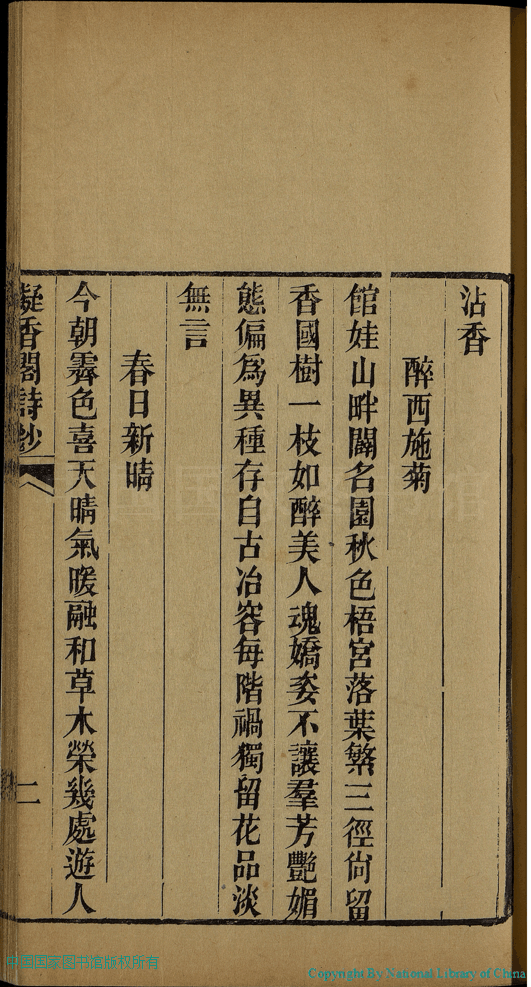 沾香
醉西施菊
館娃山畔闢名園秋色梧宮落葉繁三徑尙留
香國樹一枝如醉美人魂嬌姿不讓羣芳艷媚
態偏爲異種存自古冶容每階禍獨留花品淡
無言
春日新晴
今朝霽色喜天晴氣暖融和草木榮幾處遊人
凝香閣詩鈔
二
中国国家图书馆版权所有
Copyright By National Library of China